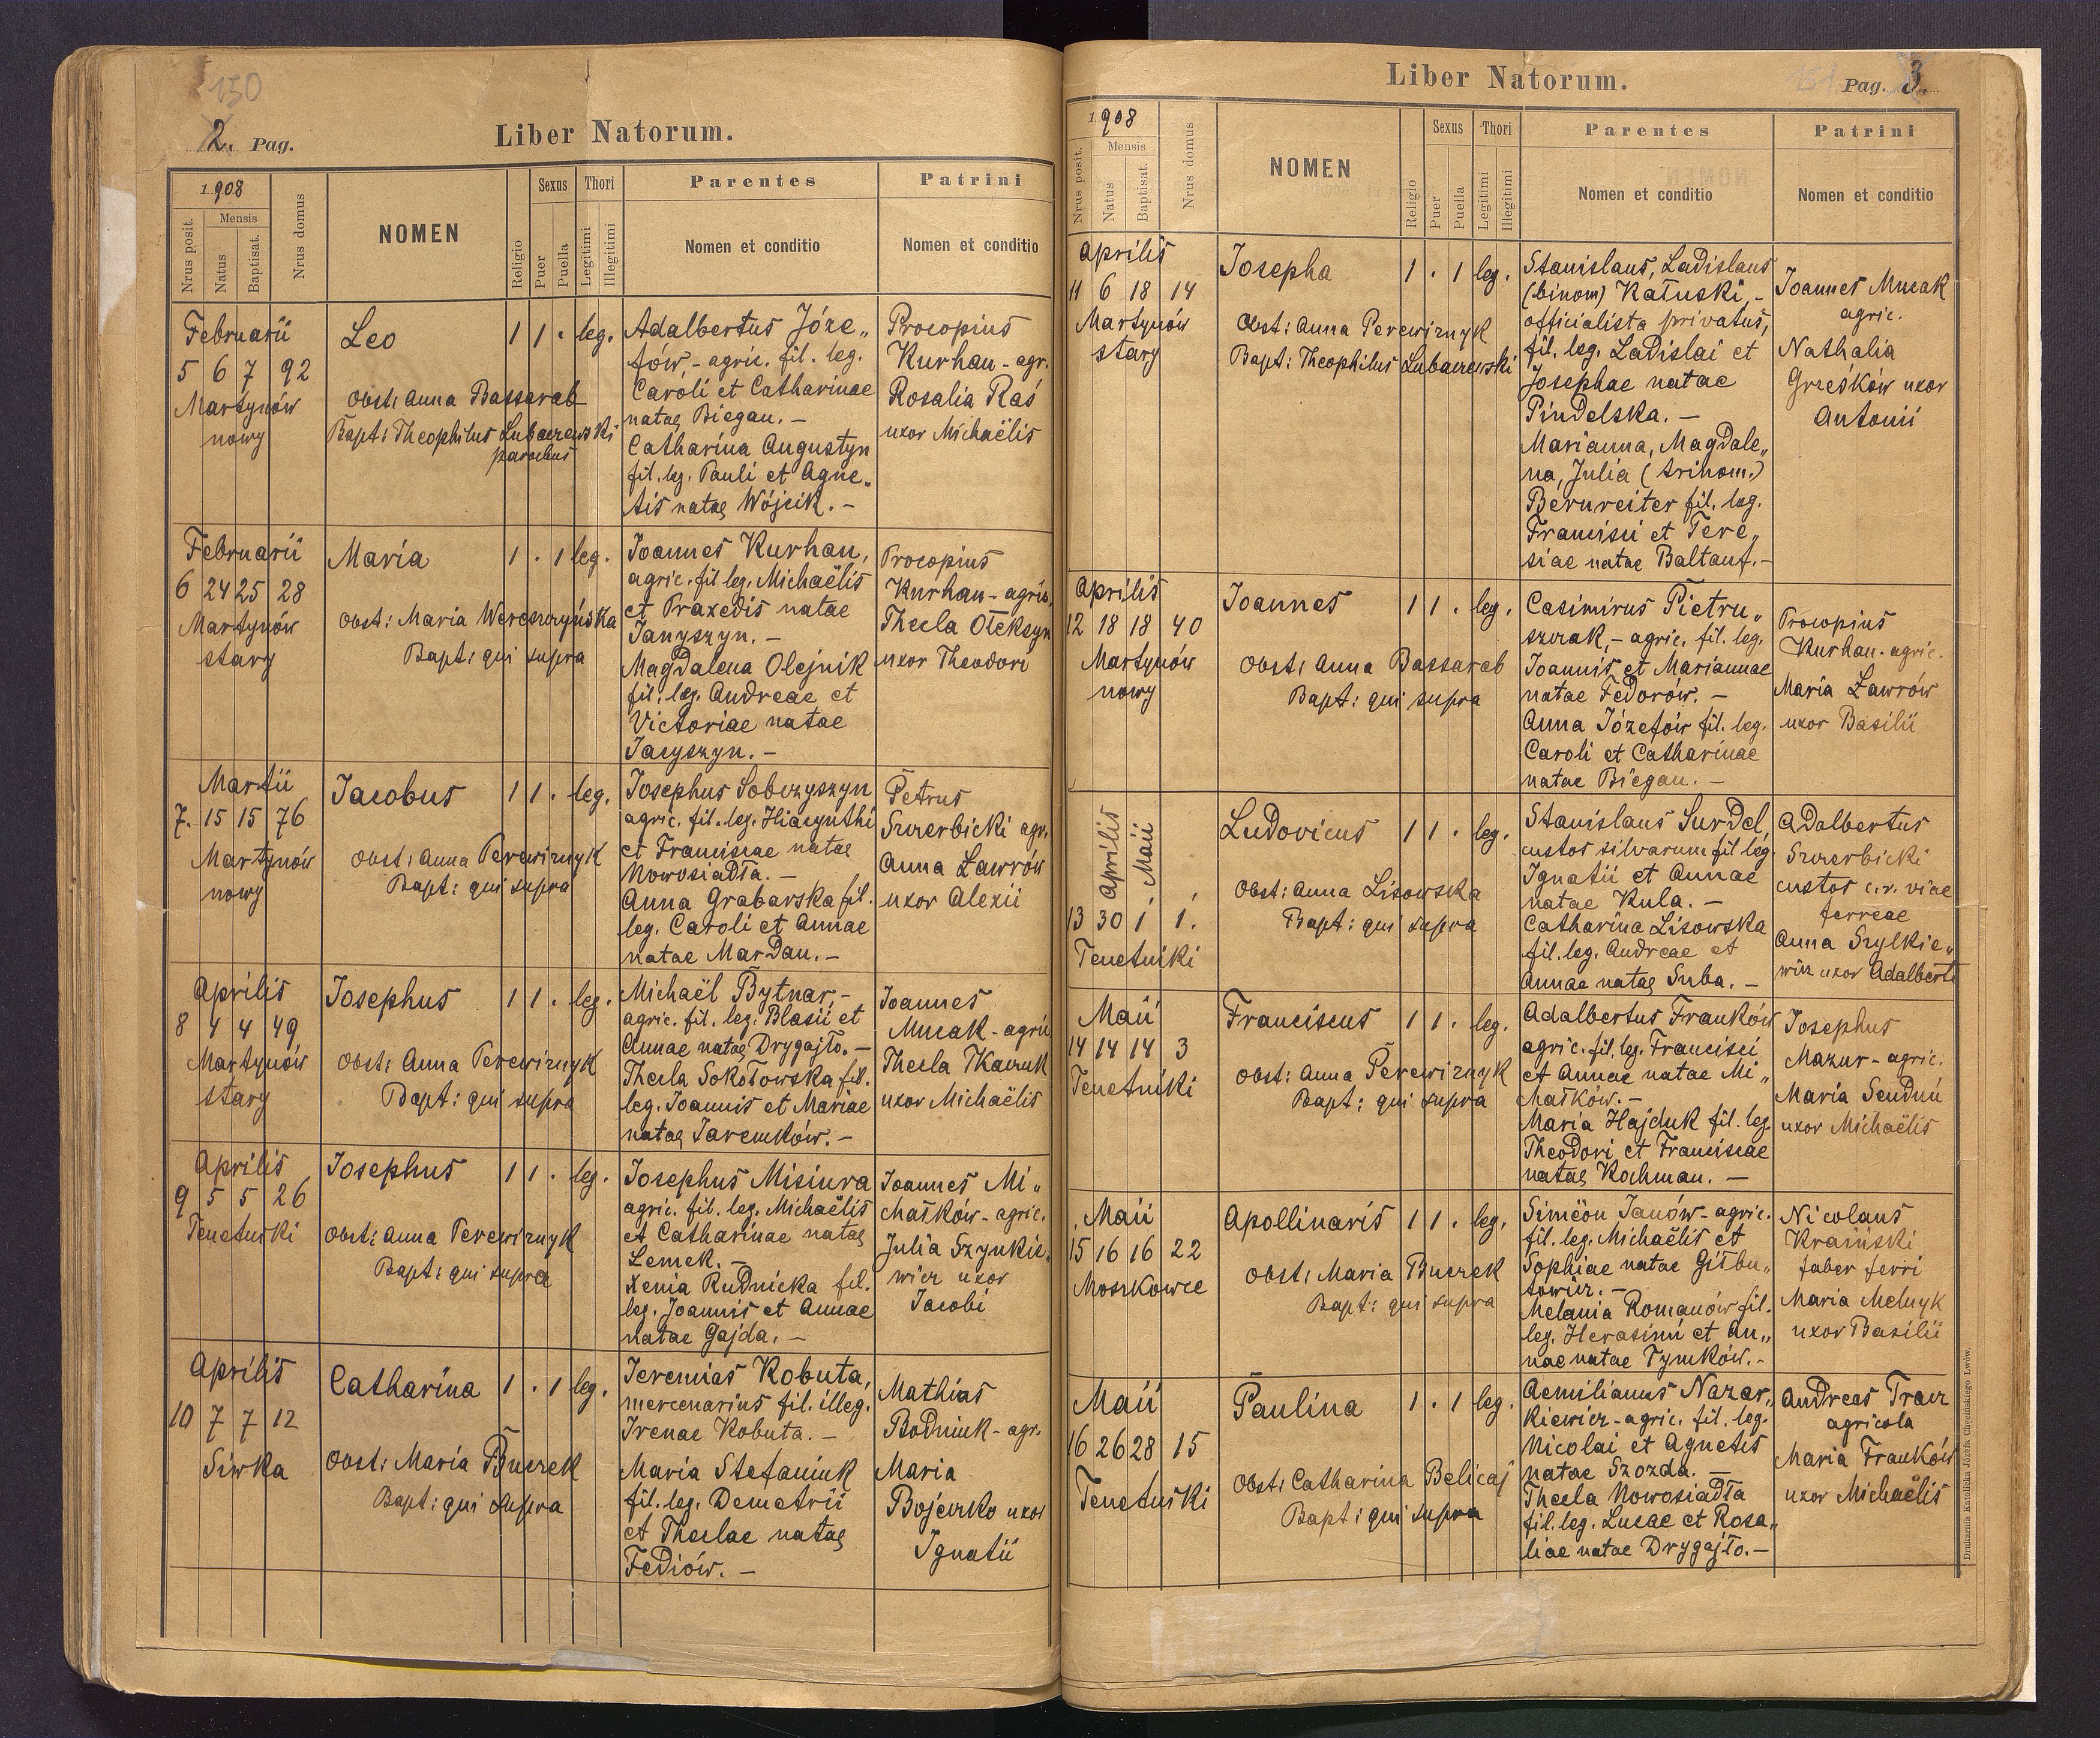 150
2. Pag.
Liber Natorum.
1908
Mensis
Nrus posit.
Natus
Baptisat.
Nrus domus
NOMEN
Religio
Sexus
Puer
Puella
Thori
Legitimi
Illegitimi
Parentes
Nomen et conditio
Patrini
Nomen et conditio
Februarii
5 6 7 92
Martynów
nowy
Leo
obst: Anna Bassarab
Bapt: Theophilus Lubaczewski
parochus
1 1 . leg.
Adalbertus Józe„
fów,- agric. fil. leg.
Caroli et Catharinae
natae Biegan. -
Catharina Augustyn
fil. leg. Pauli et Agne„
tis natae Wójcik. -
Procopius
Kurhan - agr.
Rosalia Raś
uxor Michaëlis
Februarii
6 24 25 28
Martynów
stary
Maria
obst: Maria Wereszczyńska
Bapt: qui supra
1 . 1 leg.
Joannes Kurhan,
agric. fil leg. Michaëlis
et Praxedis natae
Janyszyn. -
Magdalena Olejnik
fil. leg. Andreae et
Victoriae natae
Jacyszyn. -
Procopius
Kurhan - agric.
Thecla Ołeksyn
uxor Theodori
Martii
7. 15 15 76
Martynów
nowy
Jacobus
obst: Anna Perewiznyk
Bapt: qui supra
1 1 . leg.
Josephus Sobczyszyn
agric. fil. leg. Hiacynthi
et Franciscae natae
Nowosiadła. -
Anna Grabarska fil.
leg. Caroli et Annae
natae Mardan. -
Petrus
Szczerbicki agr.
Anna Ławrów
uxor Alexii
Aprilis
8 4 4 49
Martynów
stary
Josephus
obst: Anna Perewiznyk
Bapt: qui supra
1 1 . leg.
Michaël Bytnar, -
agric. fil. leg. Blasii et
Annae natae Drygajło. -
Thecla Sokołowska fil.
leg. Joannis et Mariae
natae Jaremków. -
Joannes
Mucak - agric
Thecla Tkaczuk
uxor Michaëlis
Aprilis
9 5 5 26
Tenetniki
Josephus
obst: Anna Perewiznyk
Bapt: qui supra
1 1 . leg.
Josephus Misiura
agric. fil. leg. Michaëlis
et Catharinae natae
Lemek. -
Xenia Rudnicka fil.
leg. Joannis et Annae
natae Gajda. -
Joannes Mi„
chałków - agric.
Julia Szynkie„
wicz uxor
Jacobi
Aprilis
10 7 7 12
Siwka
Catharina
obst: Maria Buczek
Bapt: qui supra
1 . 1 leg.
Jeremias Kobuta,
mercenarius fil. illeg.
Irenae Kobuta. -
Maria Stefaniuk
fil. leg. Demetrii
et Theclae natae
Fediów. -
Mathias
Bodniuk - agr.
Maria
Bojczko uxor
Ignatii
Liber Natorum.
Pag. 3.
1908
Mensis
Nrus posit.
Natus
Baptisat.
Nrus domus
NOMEN
Religio
Sexus
Puer
Puella
Thori
Legitimi
Illegitimi
Parentes
Nomen et conditio
Patrini
Nomen et conditio
Aprilis
11 6 18 14
Martynów
stary
Josepha
Obst: Anna Perewiznyk
Bapt: Theophilus Lubaczewski
1 . 1 leg.
Stanislaus, Ladislaus
(binom) Kałuski, -
officialista privatus,
fil. leg. Ladislai et
Josephae natae
Pindelska. -
Marianna, Magdale„
na, Julia (trinom.)
Bernreiter fil. leg.
Francisci et Tere„
siae natae Baltauf. -
Joannes Mucak
agric.
Nathalia
Grześków uxor
Antonii
Aprilis
12 18 18 40
Martynów
nowy
Joannes
Obst: Anna Bassarab
Bapt: qui supra
1 1 . leg.
Casimirus Pietru„
szczak, - agric. fil. leg.
Joannis et Mariannae
natae Fedorów. -
Anna Józefów fil. leg.
Caroli et Catharinae
natae Biegan. -
Procopius
Kurhan - agric.
Maria Ławrów
uxor Basilii
Aprilis Maii
13 30 1 1.
Tenetniki
Ludovicus
Obst: Anna Lisowska
Bapt: qui supra
1 1 . leg.
Stanislaus Surdel,
custos silvarum fil leg.
Ignatii et Annae
natae Kula. -
Catharina Lisowska
fil. leg. Andreae et
Annae natae Suba. -
Adalbertus
Szczerbicki
custos c.r. viae
ferreae
Anna Szylkie„
wicz uxor Adalberti
Maii
14 14 14 3
Tenetniki
Franciscus
Obst: Anna Perewiznyk
Bapt: qui supra
1 1 . leg.
Adalbertus Franków
agric. fil. leg. Francisci
et Annae natae Mi„
chałków. -
Maria Hajduk fil. leg.
Theodori et Franciscae
natae Kochman. -
Josephus
Mazur - agric.
Maria
uxor Michaëlis
Maii
15 16 16 22
Moszkowce
Apollinaris
Obst: Maria Buczek
Bapt: qui supra
1 1 . leg.
Simëon Janów - agric.
fil. leg. Michaëlis et
Sophiae natae Giłbu„
towicz. -
Melania Romanów fil.
leg. Herasimi et An„
nae natae Tymków. -
Nicolaus
Kraiński
faber ferri
Maria Melnyk
uxor Basilii
Maii
16 26 28 15
Tenetniki
Paulina
Obst: Catharina Belicaj
Bapt: qui supra
1 . 1 leg.
Aemilianus Nazar„
kiewicz - agric. fil. leg.
Nicolai et Agnetis
natae Szozda. -
Thecla Nowosiadła
fil. leg. Lucae et Rosa„
liae natae Drygajło. -
Andreas Tracz
agricola
Maria Franków
uxor Michaëlis
Drukarnia Katolicka Józefa Chęcińskiego Lwów.